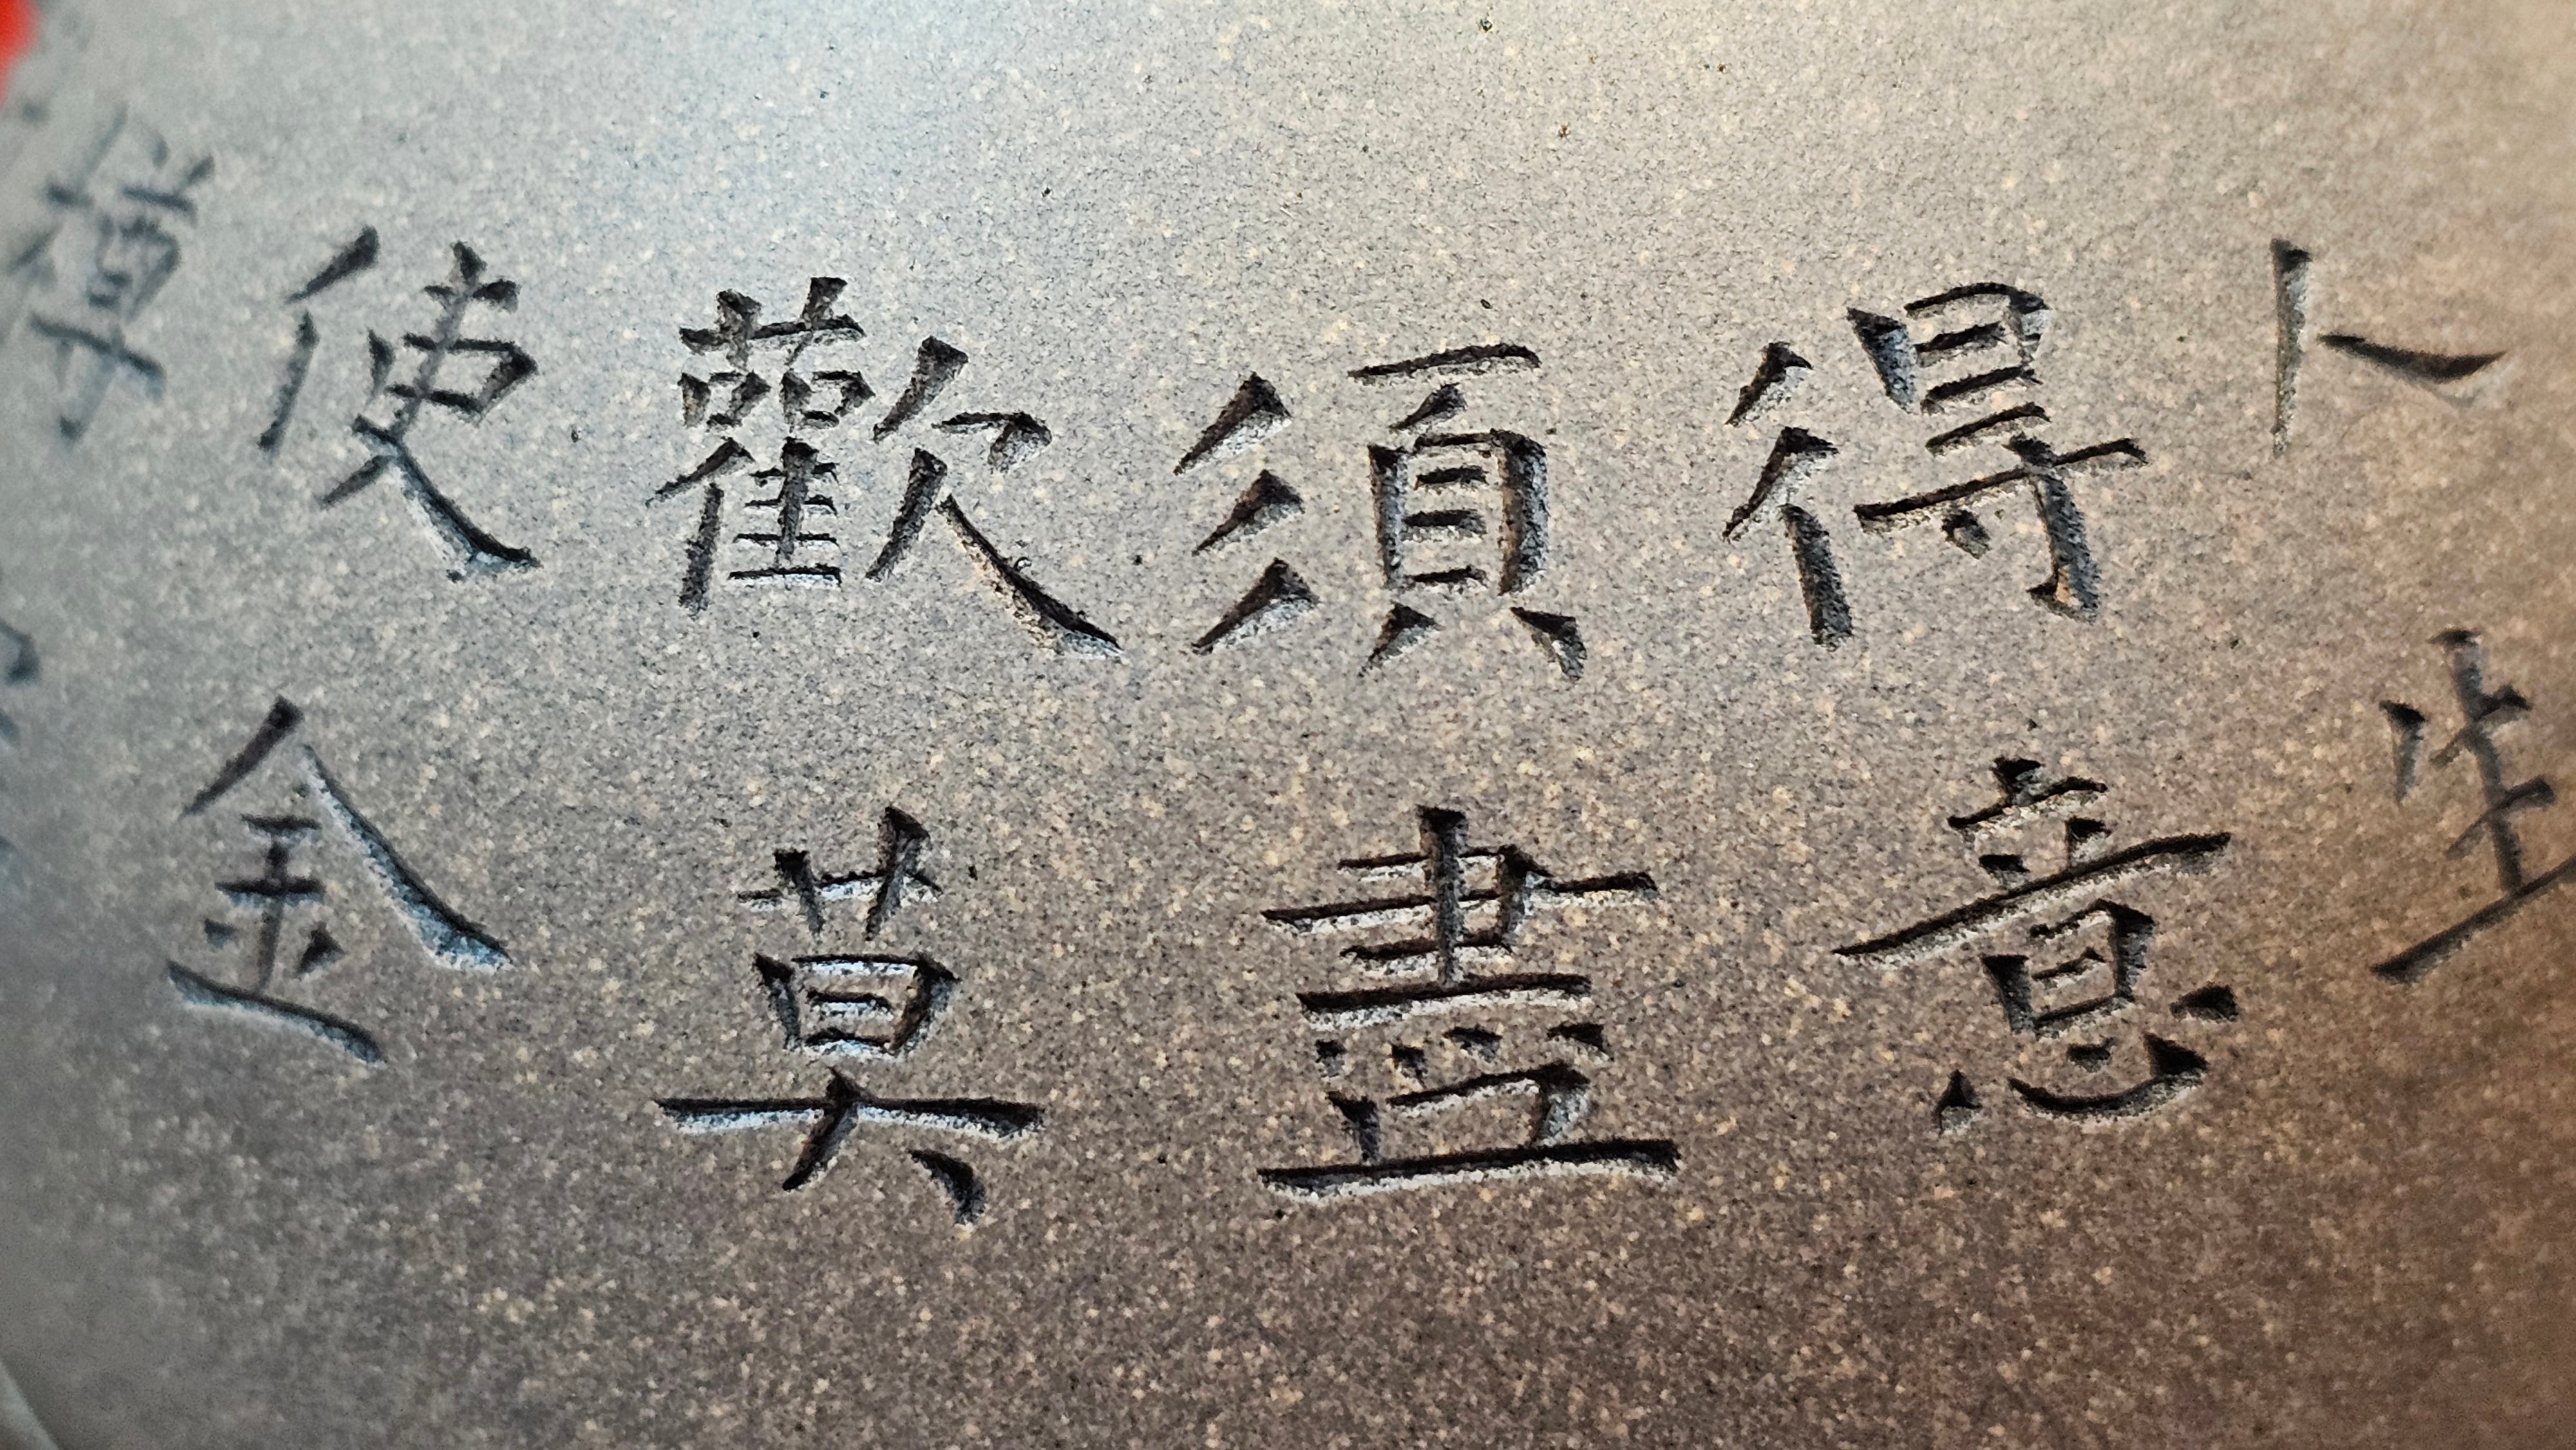 人生
得意
須盡
歡莫
使金
樽